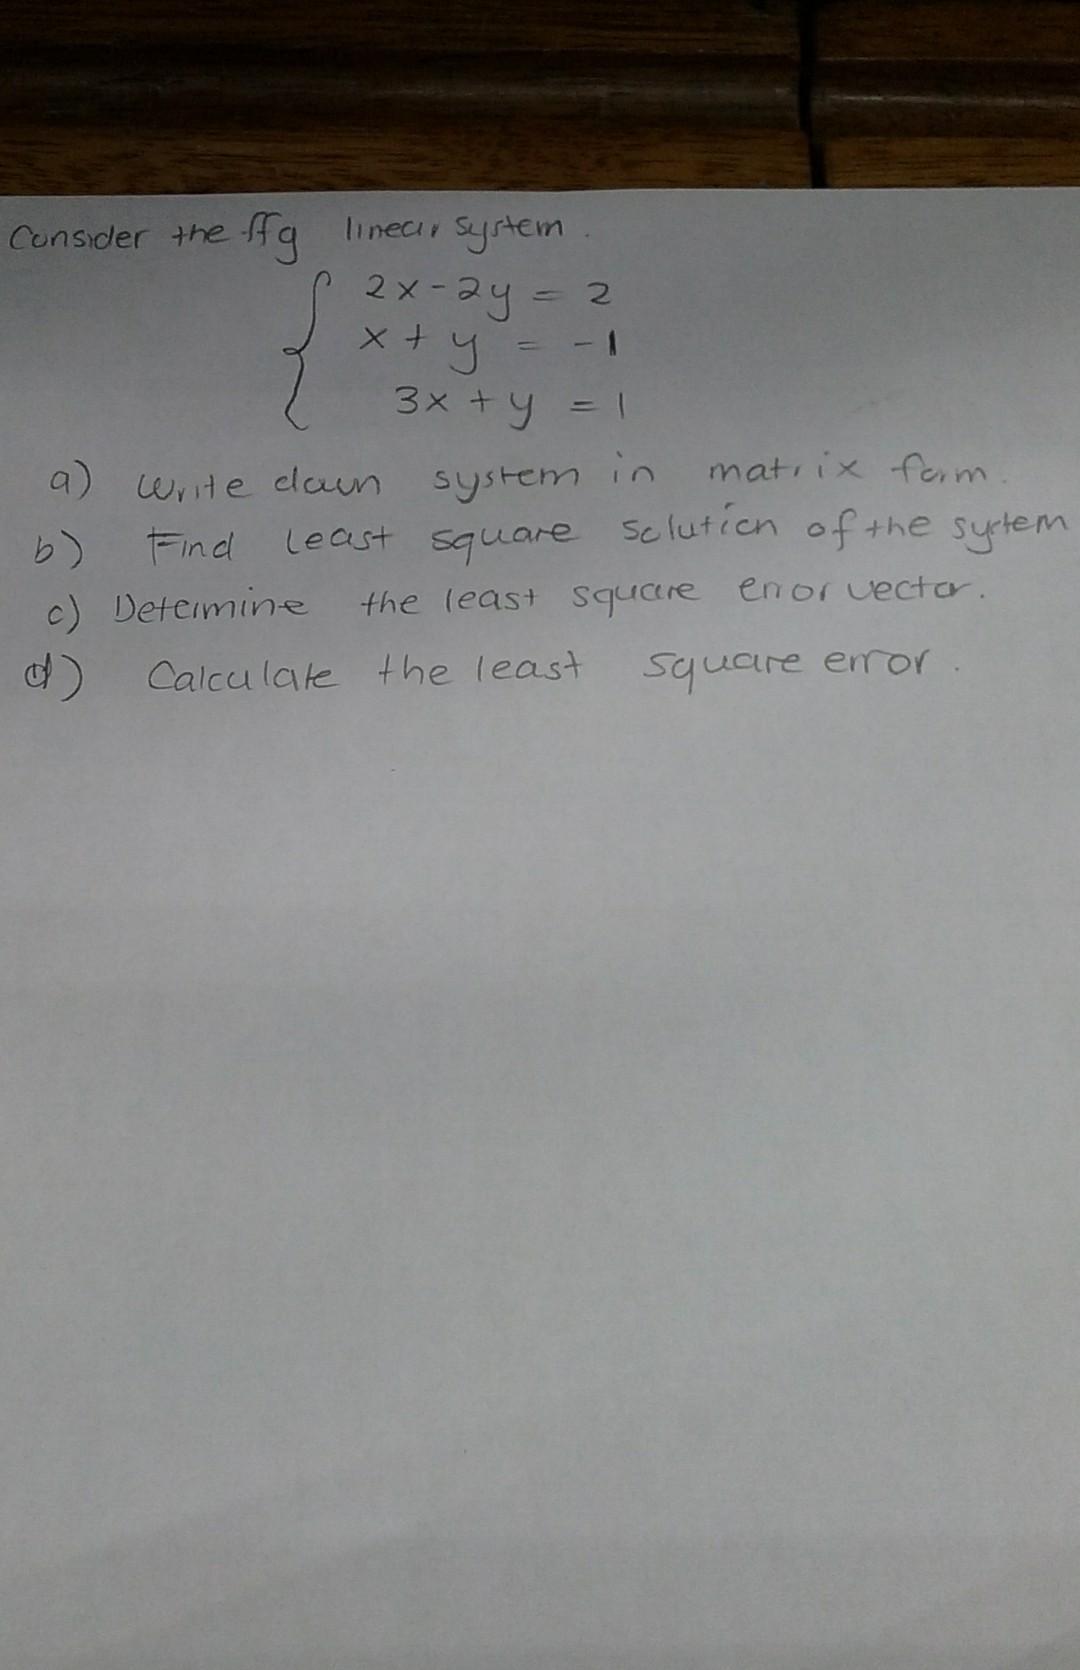 Consider the ffg linear system.
2x-2y = 2
x + y = -1
3x + y = 1
a) Write down system in matrix form.
b) Find least square solution of the system
c) Determine the least square error vector.
d) Calculate the least square error.